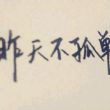 昨天不孤单